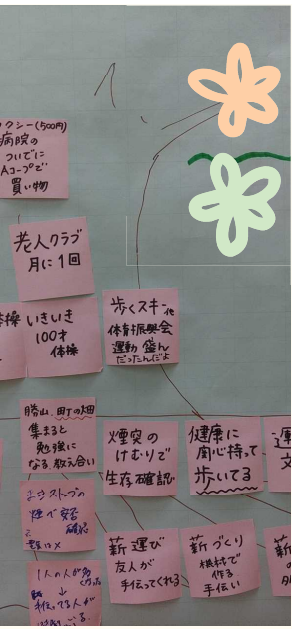 クシー(500円)
病院の
ついでに
Aコープで
買い物
老人クラブ
月に1回
体操
いきいき
100才
体操
歩くスキー他
体育振興会
運動 盛ん
だったんだよ
勝山、町の畑
集まると
勉強に
なる 教え合い
煙突の
けむりで
生存確認
健康に
関心持って
歩いてる
運
文
まきストーブの
煙で安否
確認
1人の人が多
薪運び
友人が
手伝ってくれる
薪づくり
機械で
作る
手伝い
薪